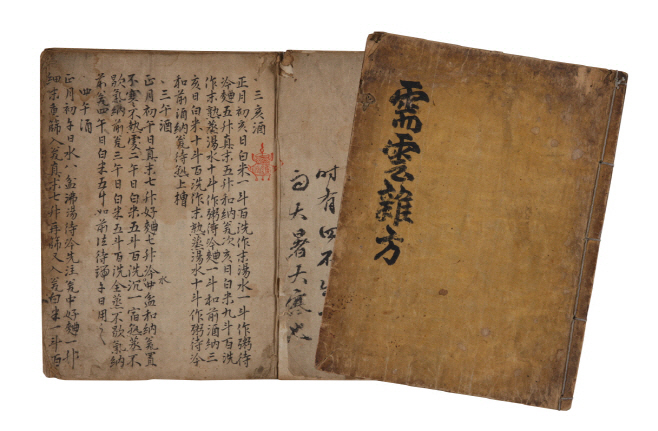 需雲雜方
时有四不
而大暑大寒尤
三亥酒
正月初亥日白米一斗百洗作末湯水一斗作粥待
冷麵五升真末五升和納瓮次亥日白米九斗百洗
作末熟蒸湯水十斗作粥待冷麵一斗和前酒納三
亥日白米十斗百洗作末熟蒸湯水十斗作粥待冷
和前酒納瓮待熟上槽
三午酒
正月初午日真末七升好麵七升冷水四盆和納瓮置
不寒不熱處二午日白米五斗百洗沉一宿熟蒸不
歇氣納前瓮三午日白米五斗百洗全蒸不歇氣納
前瓮四午日白米五斗如前法待端午日用之
四午酒
正月初午日水八盆沸湯待冷先注瓮中好麵一升
細末重篩入瓮真末七升再篩又入瓮白米一斗百